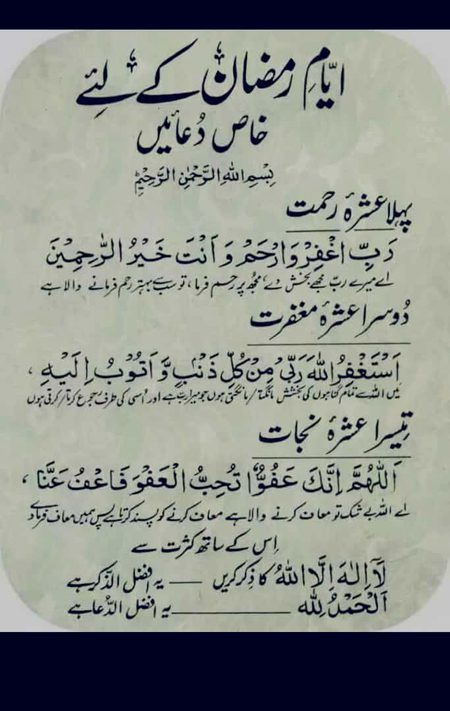 ایامِ رمضان کے لئے
خاص دُعائیں
بِسْمِ اللهِ الرَّحْمٰنِ الرَّحِيْمِ
پہلا عشرۂ رحمت
رَبِّ اغْفِرْ وَارْحَمْ وَاَنْتَ خَيْرُ الرّٰحِمِيْنَ
اے میرے ربّ مجھے بخش دے، مجھ پر رحم فرما، تو سب سے بہتر رحم فرمانے والا ہے
دُوسرا عشرۂ مغفرت
اَسْتَغْفِرُ اللهَ رَبِّىْ مِنْ كُلِّ ذَنْۢبٍ وَّاَتُوْبُ اِلَيْهِ ،
میں اللہ سے تمام گناہوں کی بخشش مانگتا/مانگتی ہوں جو میرا رب ہے اور اُسی کی طرف رجوع کرتا/کرتی ہوں
تیسرا عشرۂ نجات
اَللّٰهُمَّ اِنَّكَ عَفُوٌّ تُحِبُّ الْعَفْوَ فَاعْفُ عَنَّا ،
اے اللہ بے شک تو معاف کرنے والا ہے معاف کرنے کو پسند کرتا ہے پس ہمیں معاف فرما دے
اِس کے ساتھ کثرت سے
لَآ اِلٰهَ اِلَّا اللهُ کا ذکر کریں — یہ افضل الذّکر ہے
اَلْحَمْدُ لِلّٰهِ — یہ افضل الدُّعا ہے